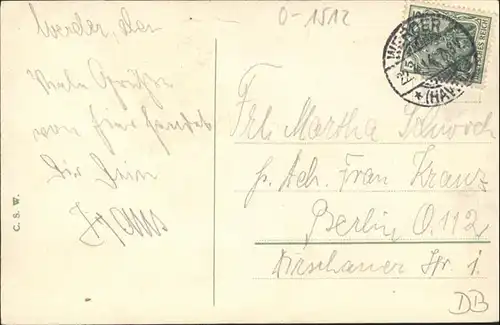 0-1512
Werder, den
Viele Grüße
von hier sendet
Dir Dein
Hans
C. S. W.
WERDER
(HAVEL)
DEUTSCHES REICH
Frl. Martha
p. Adr. Frau Kranz
Berlin O. 112
Str. 1.
DB